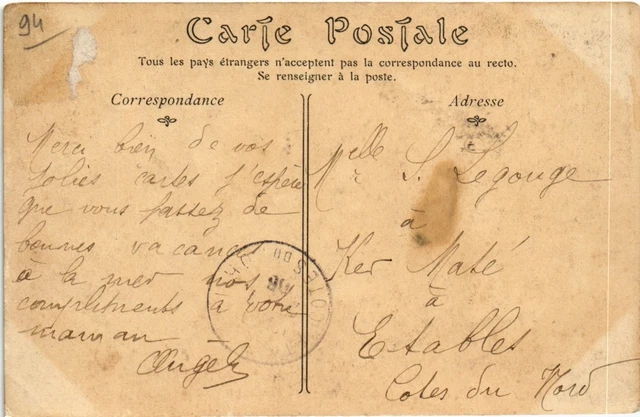 94
Carte Postale
Tous les pays étrangers n'acceptent pas la correspondance au recto.
Se renseigner à la poste.
Correspondance
Merci bien de vos
jolies cartes j'espère
que vous passez de
bonnes vacances
à la mer nos
compliments à votre
maman
Angèle
Adresse
Melle S. Legouge
à
Ker Maté
à
Etables
Cotes du Nord